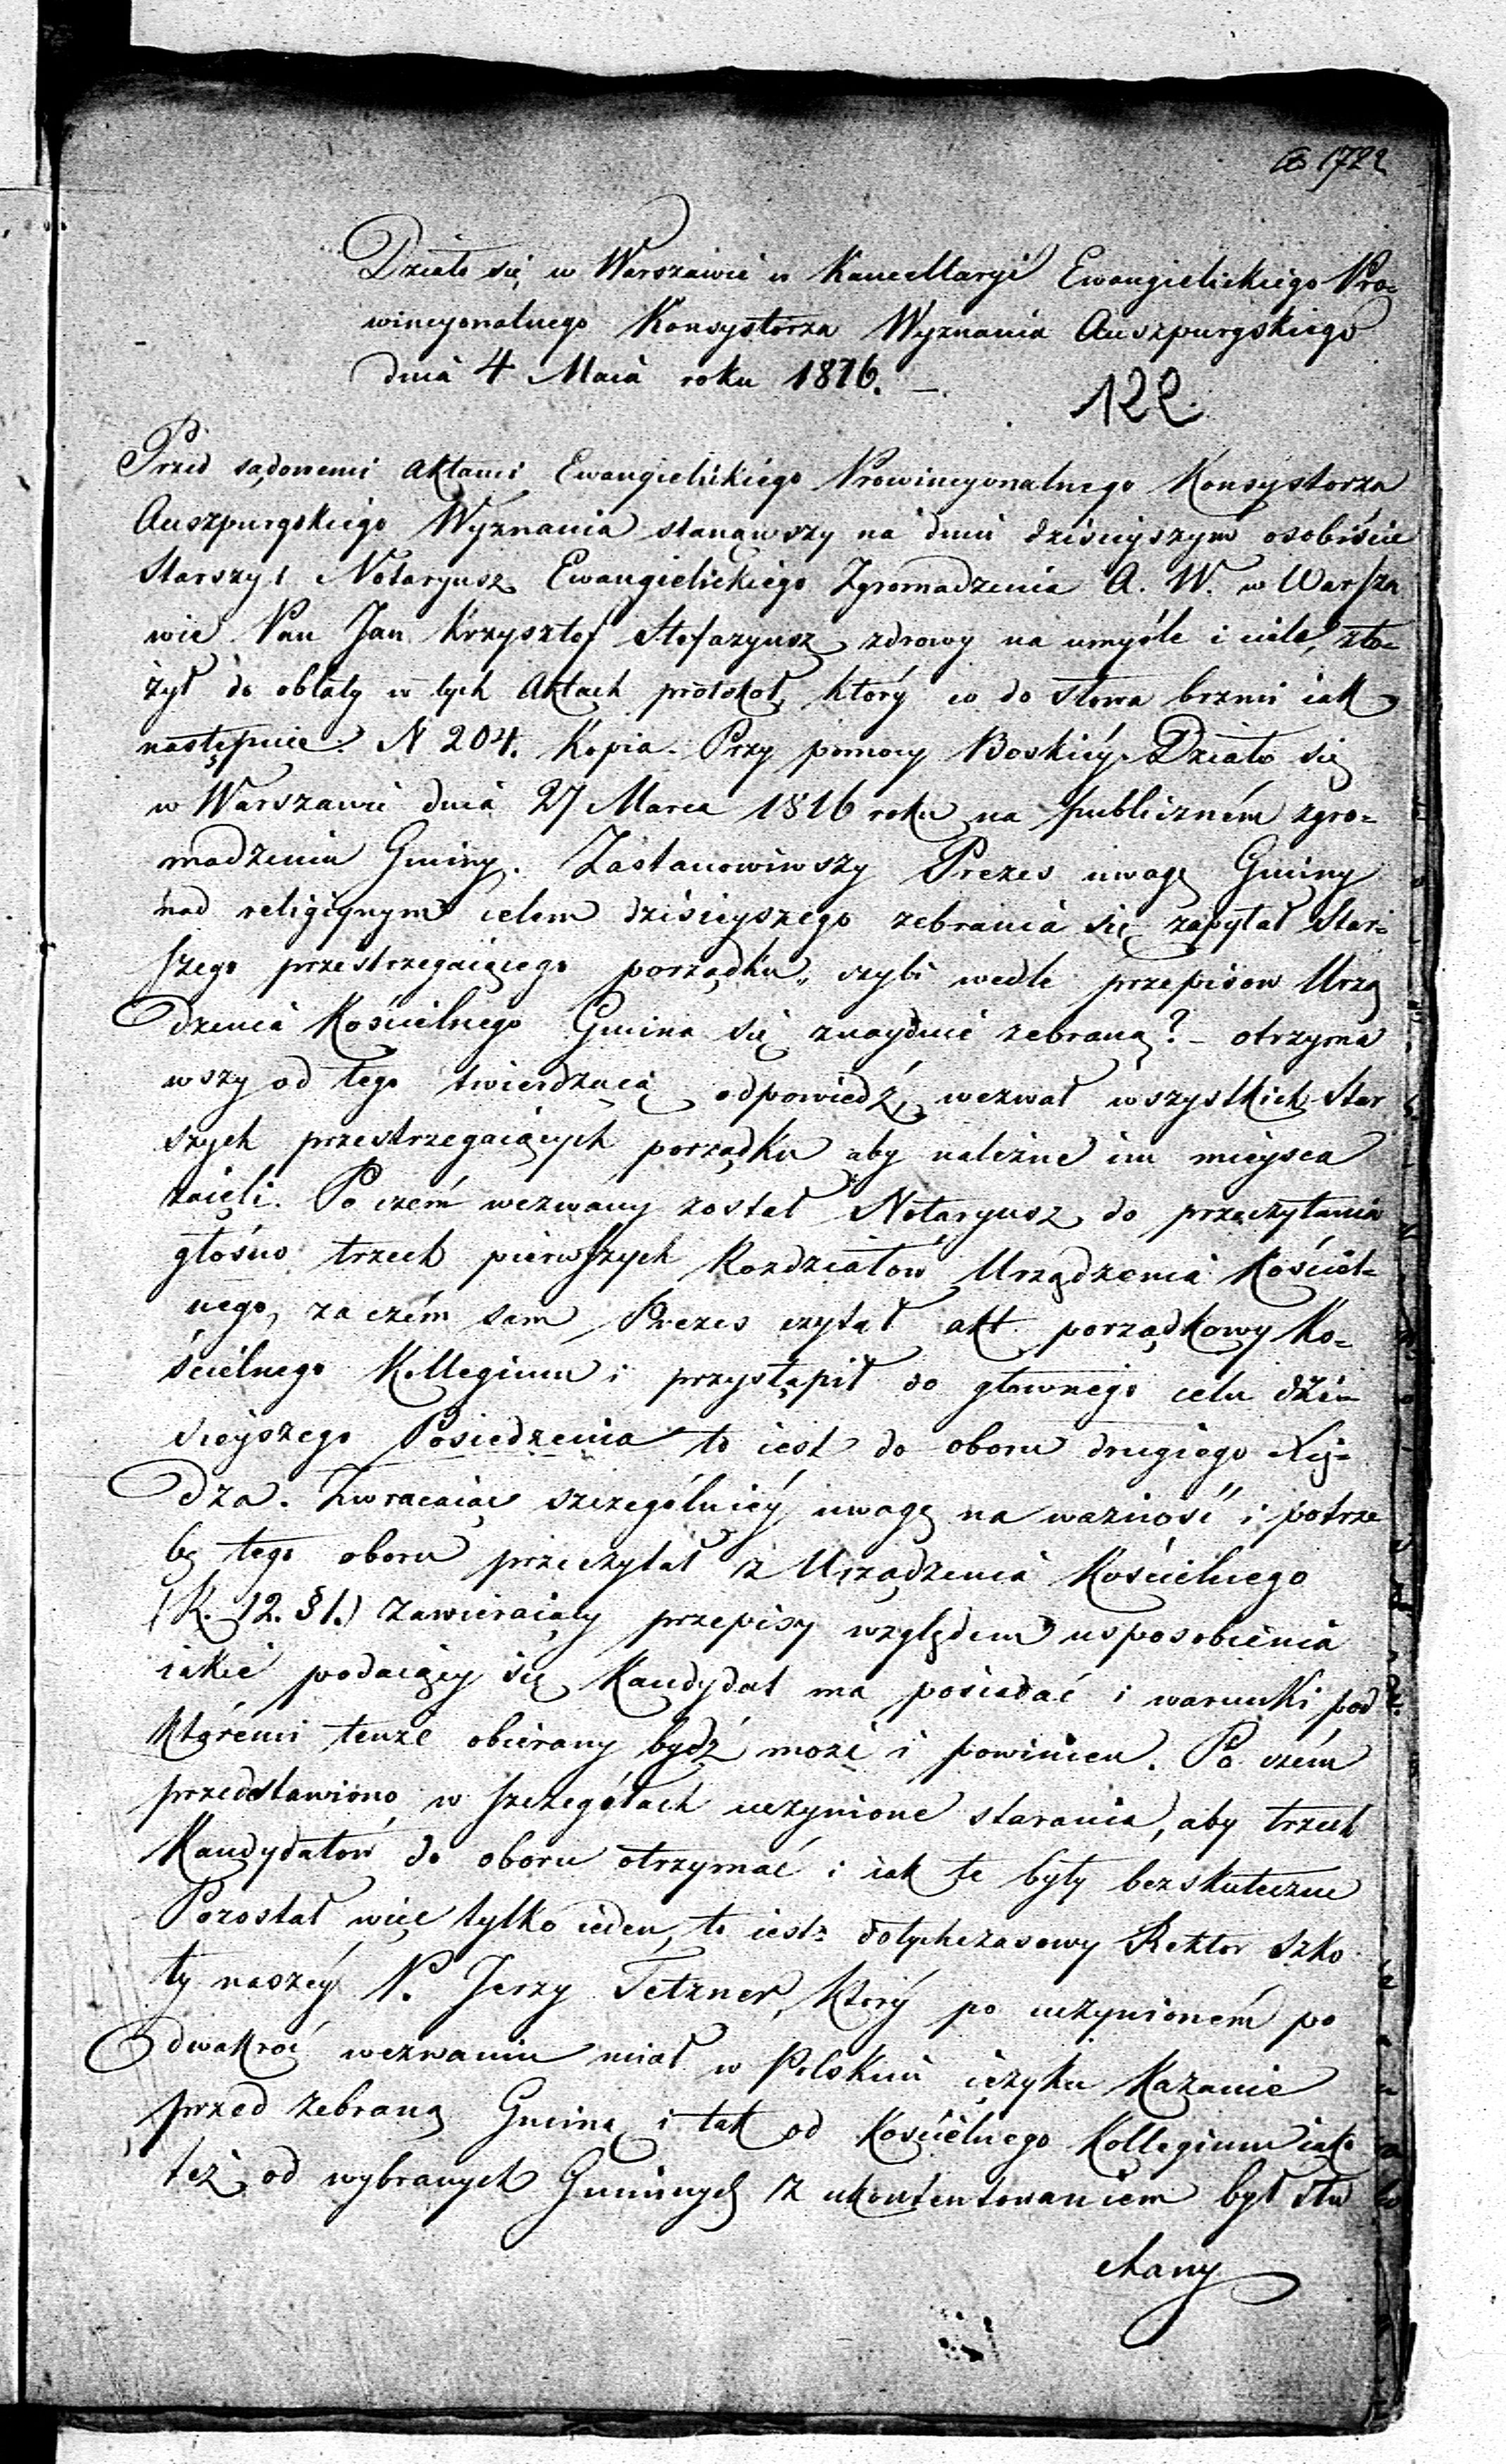 1722
Działo się w Warszawie w Kancellaryi Ewangielickiego Pro=
wincyonalnego Konsystorza Wyznania Auszpurgskiego
dnia 4 Maia roku 1816. —.
122
Przed sądowemi Aktami Ewangielickiego Prowincyonalnego Konsystorza
Auszpurgskiego Wyznania stanąwszy na dniu dzisieyszym osobiście
Starszy i Notaryusz Ewangielickiego Zgromadzenia A. W. w Warsza
wie Pan Jan Krzysztof Stefazyusz zdrowy na umyśle i ciele, zło=
żył do oblaty w tych Aktach protokoł, który co do słowa brzmi iak
następuie: N 204. Kopia. Przy pomocy Boskiéy. Działo się
w Warszawie dnia 27 Marca 1816 roku na publiczném zgro=
madzeniu Gminy. Zastanowiwszy Prezes uwagę Gminy
nad religiynym celem dzisieyszego zebrania się zapytał Star=
szego przestrzegaiącego porządku, czyli wedle przepisow Urzą
dzenia Kościelnego Gmina się znayduie zebraną? – otrzyma
wszy od tego twierdzącą odpowiedź, wezwał wszystkich Star
szych przestrzegaiących porządku aby należne im mieysca
zaieli. Po czém wezwany został Notaryusz do przeczytania
głośno trzech pierwszych Rozdziałów Urządzenia Kościel=
nego, za czém sam Prezes czytał akt porządkowy Ko=
ścielnego Kollegium i przystąpił do głownego celu dzi=
sieyszego Posiedzenia to iest do oboru drugiego Xię=
dza. Zwracaiąc szczególniéy uwagę na ważność i potrze
bę tego oboru przeczytał z Urządzenia Kościelnego
(R. 12. § 1.) zawieraiący przepisy względem usposobienia
iakie podaiący się Kandydat ma posiadać i warunki pod
któremi tenże obierany bydź może i powinien. Po czém
przedstawiono w szczegółach uczynione starania, aby trzech
Kandydatów do oboru otrzymać i iak te były bezskuteczne
Pozostał więc tylko ieden, to iest: dotychczasowy Rektor szko
ły naszéy P. Jerzy Tetzner, który po uczynioném po
dwakroć wezwaniu miał w Polskim ięzyku Kazanie
przed zebraną Gminą i tak od Kościelnego Kollegium iako
też od wybranych Gminnych z ukontentowaniem był słu
chany